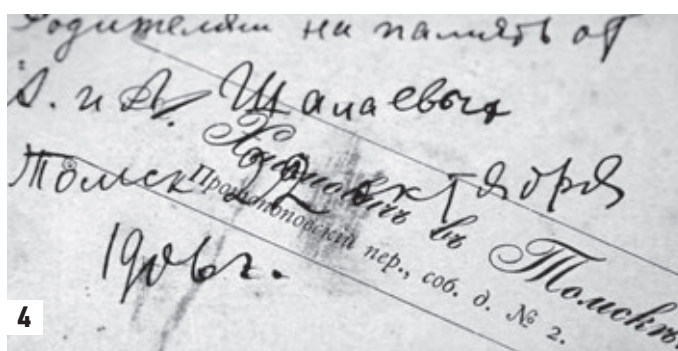 Родителям на память от
А. и А. Шалаевых
Томск 2 октября
1906 г.
въ Томскѣ.
Протопоповскій пер., соб. д. № 2.
4